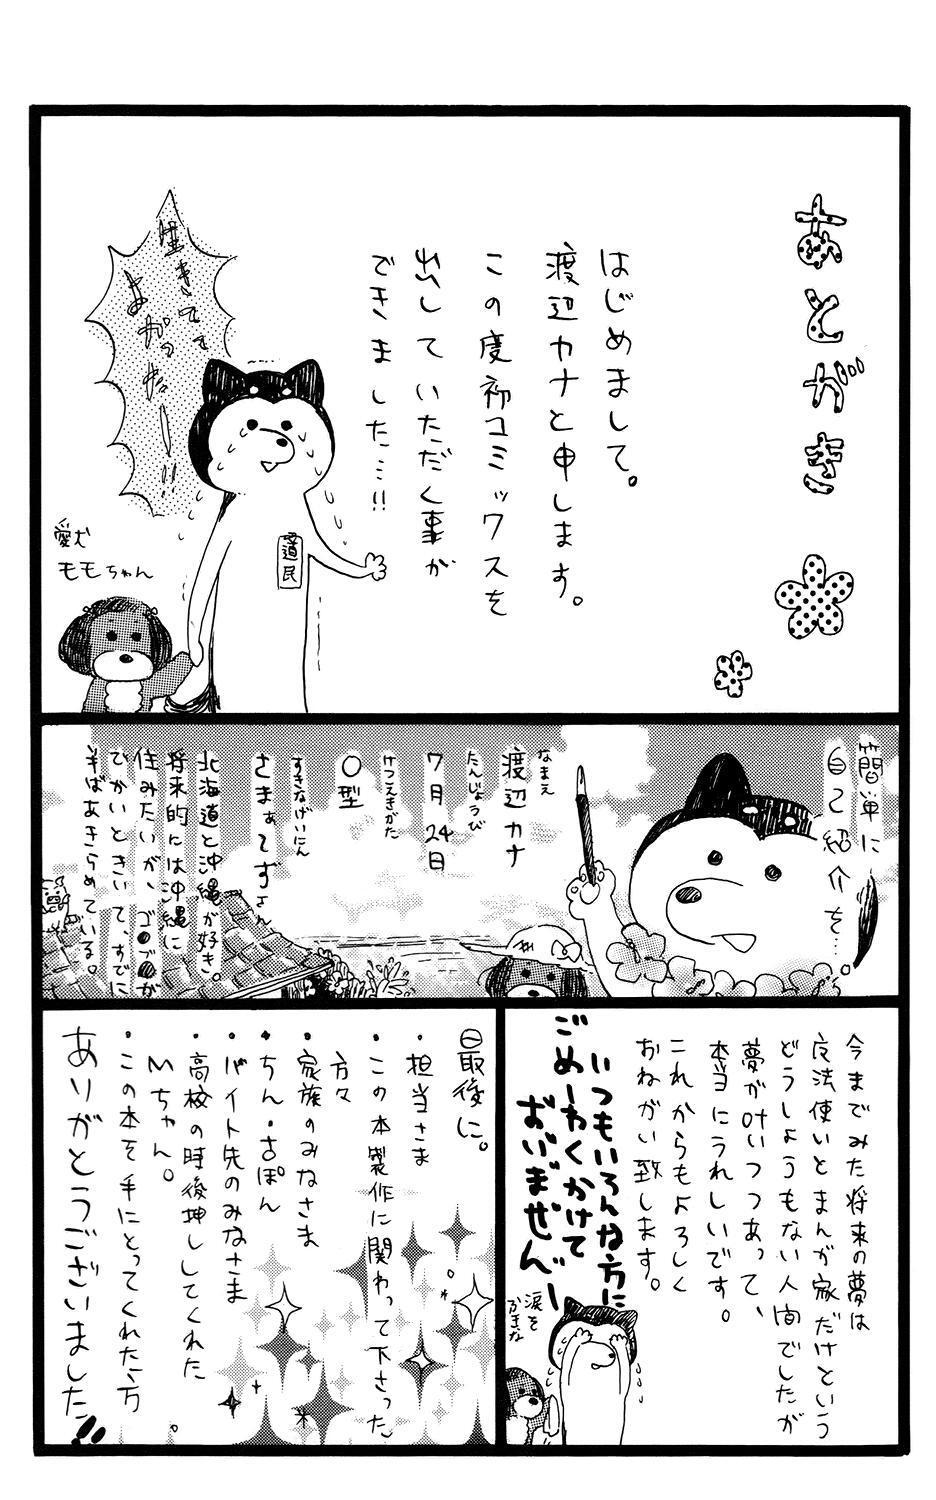 あとがき
はじめまして。
渡辺カナと申します。
この度初コミックスを
出していただく事が
できました…!!
生きてて
よかったー!!
道民
愛犬
モモちゃん
簡単に
自己紹介を…。
なまえ
渡辺カナ
たんじょうび
7月24日
けつえきがた
O型
すきなげいにん
さまぁ~ずさん
北海道と沖縄が好き。
将来的には沖縄に
住みたいが、ゴ●ブ●が
でかいときいて、すでに
半ばあきらめている。
今までみた将来の夢は
魔法使いとまんが家だけという
どうしようもない人間でしたが
夢が叶いつつあって、
本当にうれしいです。
これからもよろしく
おねがい致します。
いつもいろんな方に
ごめーわくかけて
おいまぜんー
涙を
ふきな
最後に。
・担当さま
・この本製作に関わって下さった
方々
・家族のみなさま
・ちん・さぽん
・バイト先のみなさま
・高校の時後押ししてくれた
Mちゃん。
・この本を手にとってくれた方
ありがとうございました!!